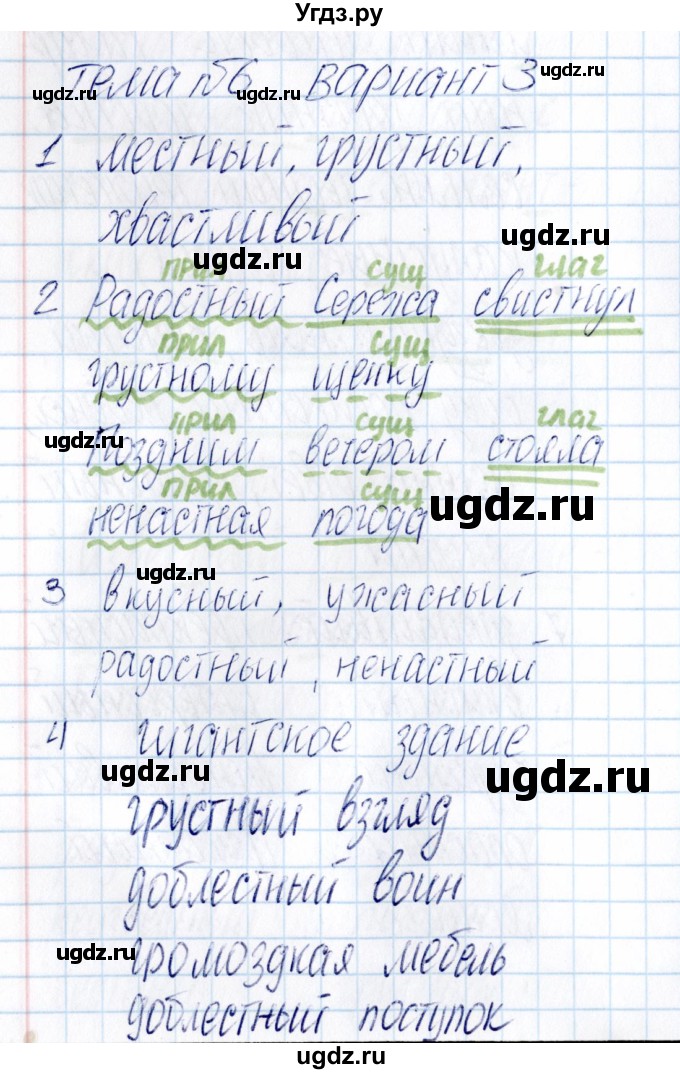 Угдз.ру
Тема №6 вариант 3
1 местный, грустный,
хвастливый
прил сущ глаг
2 Радостный Сережа свистнул
прил сущ
грустному щенку
прил сущ глаг
Поздним вечером стояла
прил сущ
ненастная погода
3 вкусный, ужасный
радостный, ненастный
4 гигантское здание
грустный взгляд
доблестный воин
громоздкая мебель
доблестный поступок
ugdz.ru